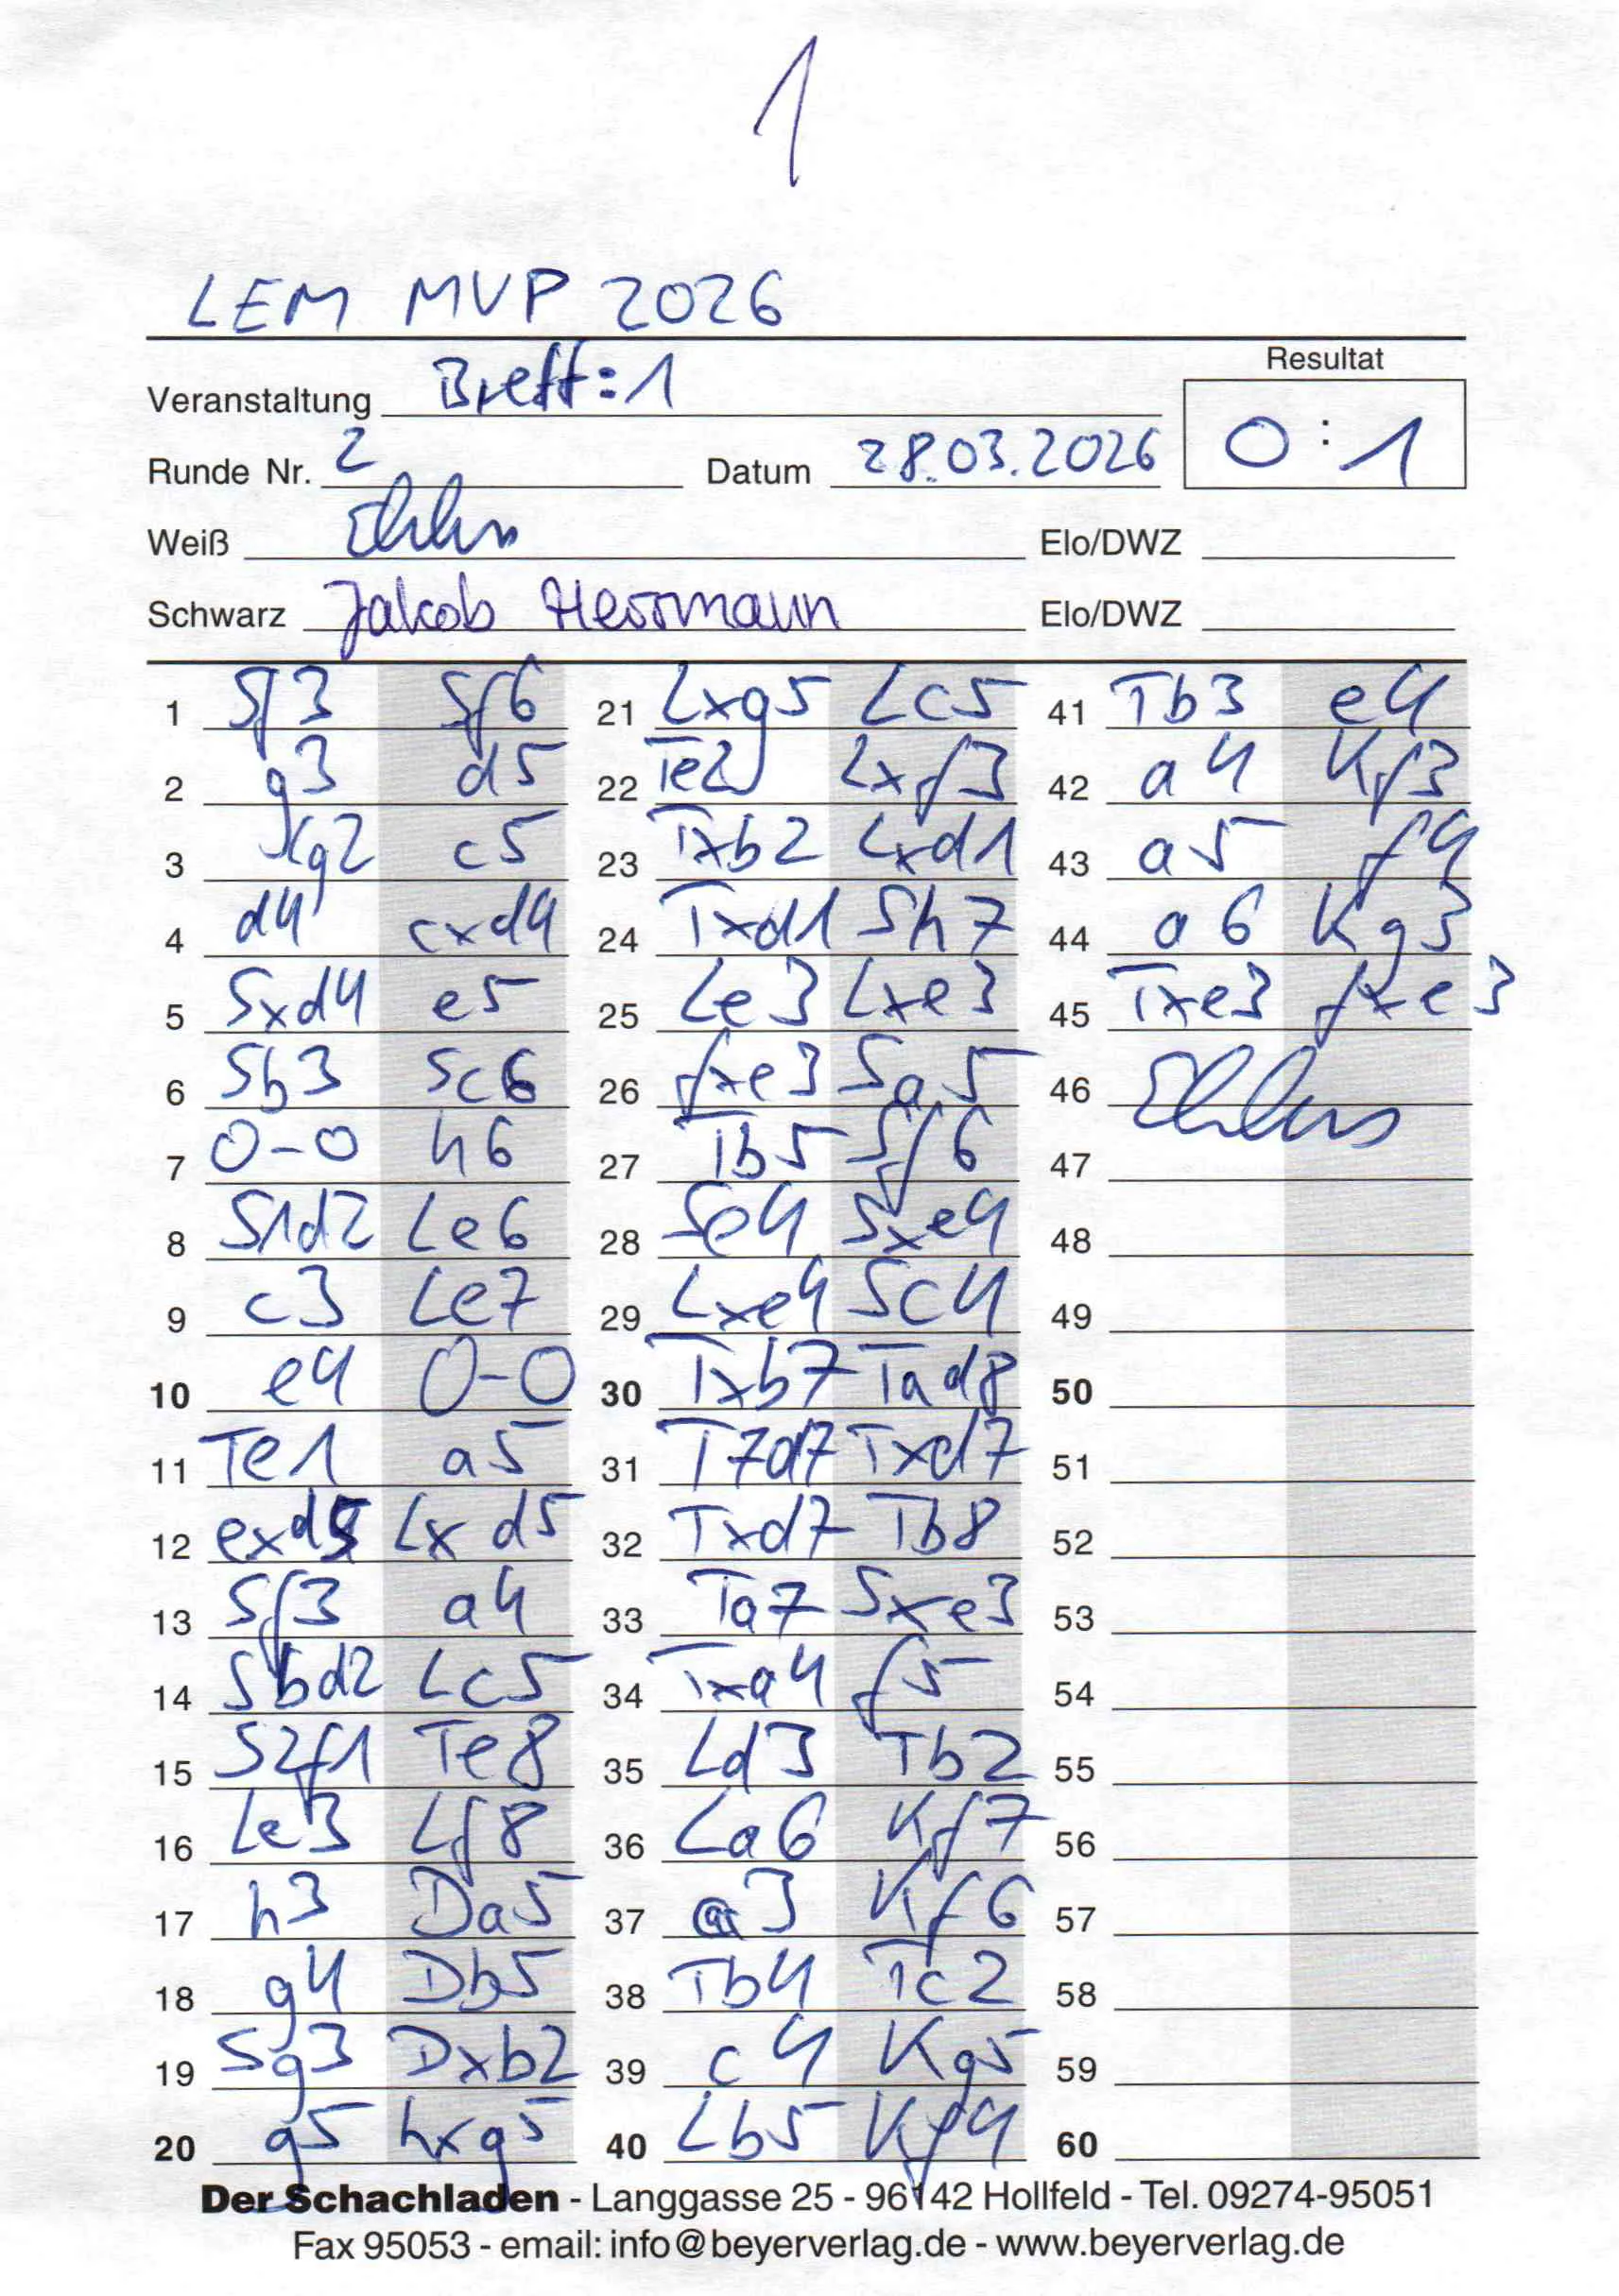 1
LEM MVP 2026
Resultat
Veranstaltung Brett: 1
0 : 1
Runde Nr. 2 Datum 28.03.2026
Weiß Ehlers Elo/DWZ
Schwarz Jakob Herrmann Elo/DWZ
1 Sf3 Sf6
2 g3 d5
3 Lg2 c5
4 d4 cxd4
5 Sxd4 e5
6 Sb3 Sc6
7 0-0 h6
8 S1d2 Le6
9 c3 Le7
10 e4 0-0
11 Te1 a5
12 exd5 Lxd5
13 Sf3 a4
14 Sbd2 Lc5
15 S2f1 Te8
16 Le3 Lf8
17 h3 Da5
18 g4 Db5
19 Sg3 Dxb2
20 g5 hxg5
21 Lxg5 Lc5
22 Te2 Lxf3
23 Txb2 Lxd1
24 Txd1 Sh7
25 Le3 Lxe3
26 fxe3 Sa5
27 Tb5 Sf6
28 Se4 Sxe4
29 Lxe4 Sc4
30 Txb7 Tad8
31 T7d7 Txd7
32 Txd7 Tb8
33 Ta7 Sxe3
34 Txa4 f5
35 Ld3 Tb2
36 La6 Kf7
37 a3 Kf6
38 Tb4 Tc2
39 c4 Kg5
40 Lb5 Kf4
41 Tb3 e4
42 a4 Kf3
43 a5 f4
44 a6 Kg3
45 Txe3 fxe3
46 Ehlers
47
48
49
50
51
52
53
54
55
56
57
58
59
60
Der Schachladen - Langgasse 25 - 96142 Hollfeld - Tel. 09274-95051
Fax 95053 - email: info@beyerverlag.de - www.beyerverlag.de